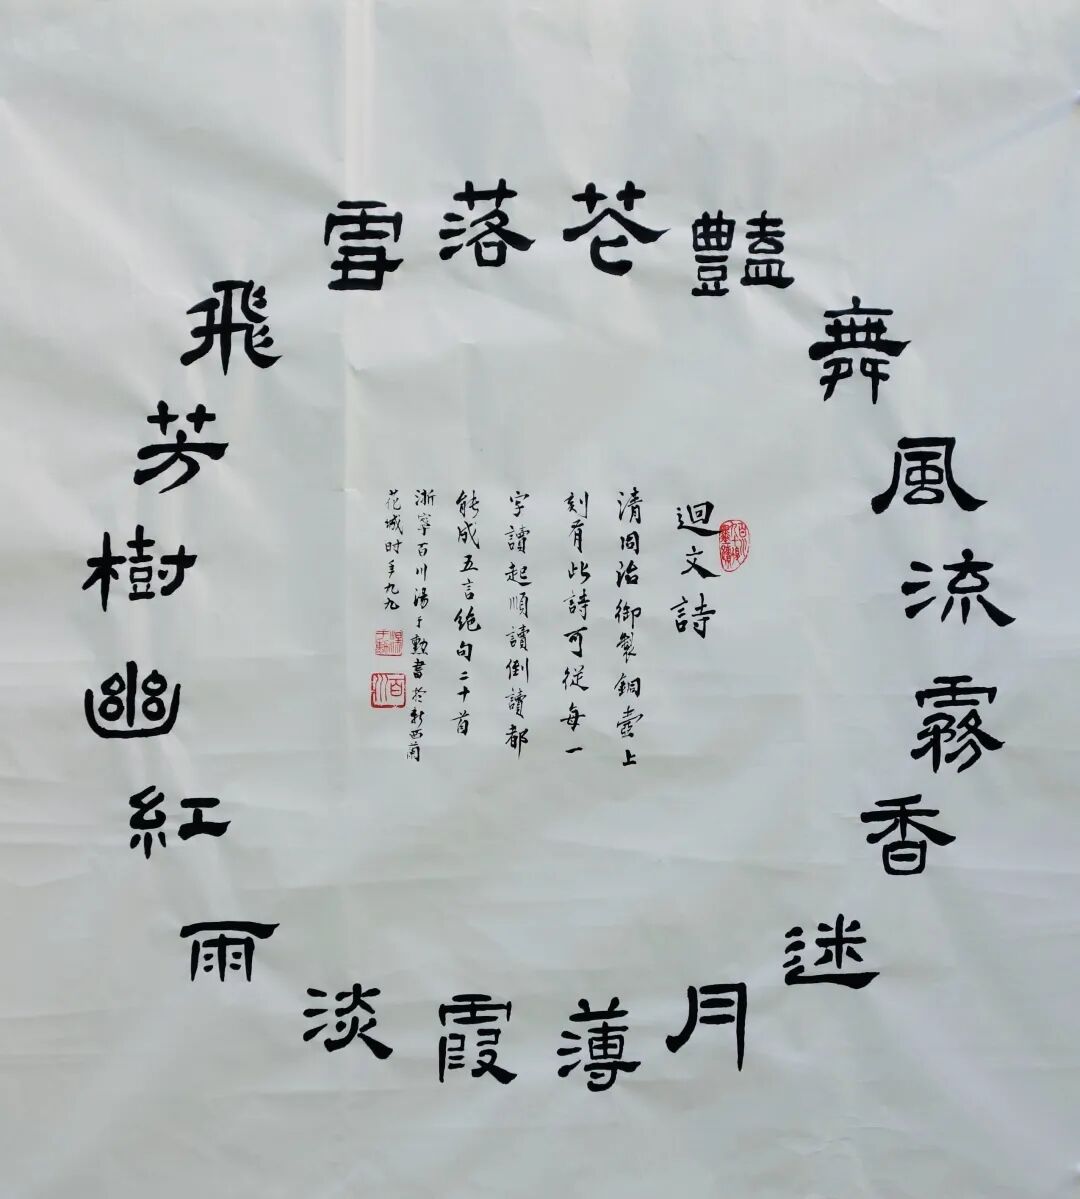 落雪飛芳樹幽紅雨淡霞薄月迷香霧流風舞豔花
迴文詩
清同治御製銅壺上
刻有此詩可從每一
字讀起順讀倒讀都
能成五言絶句二十首
浙寧百川湯于勲書於新西蘭
花城时年九九
百川